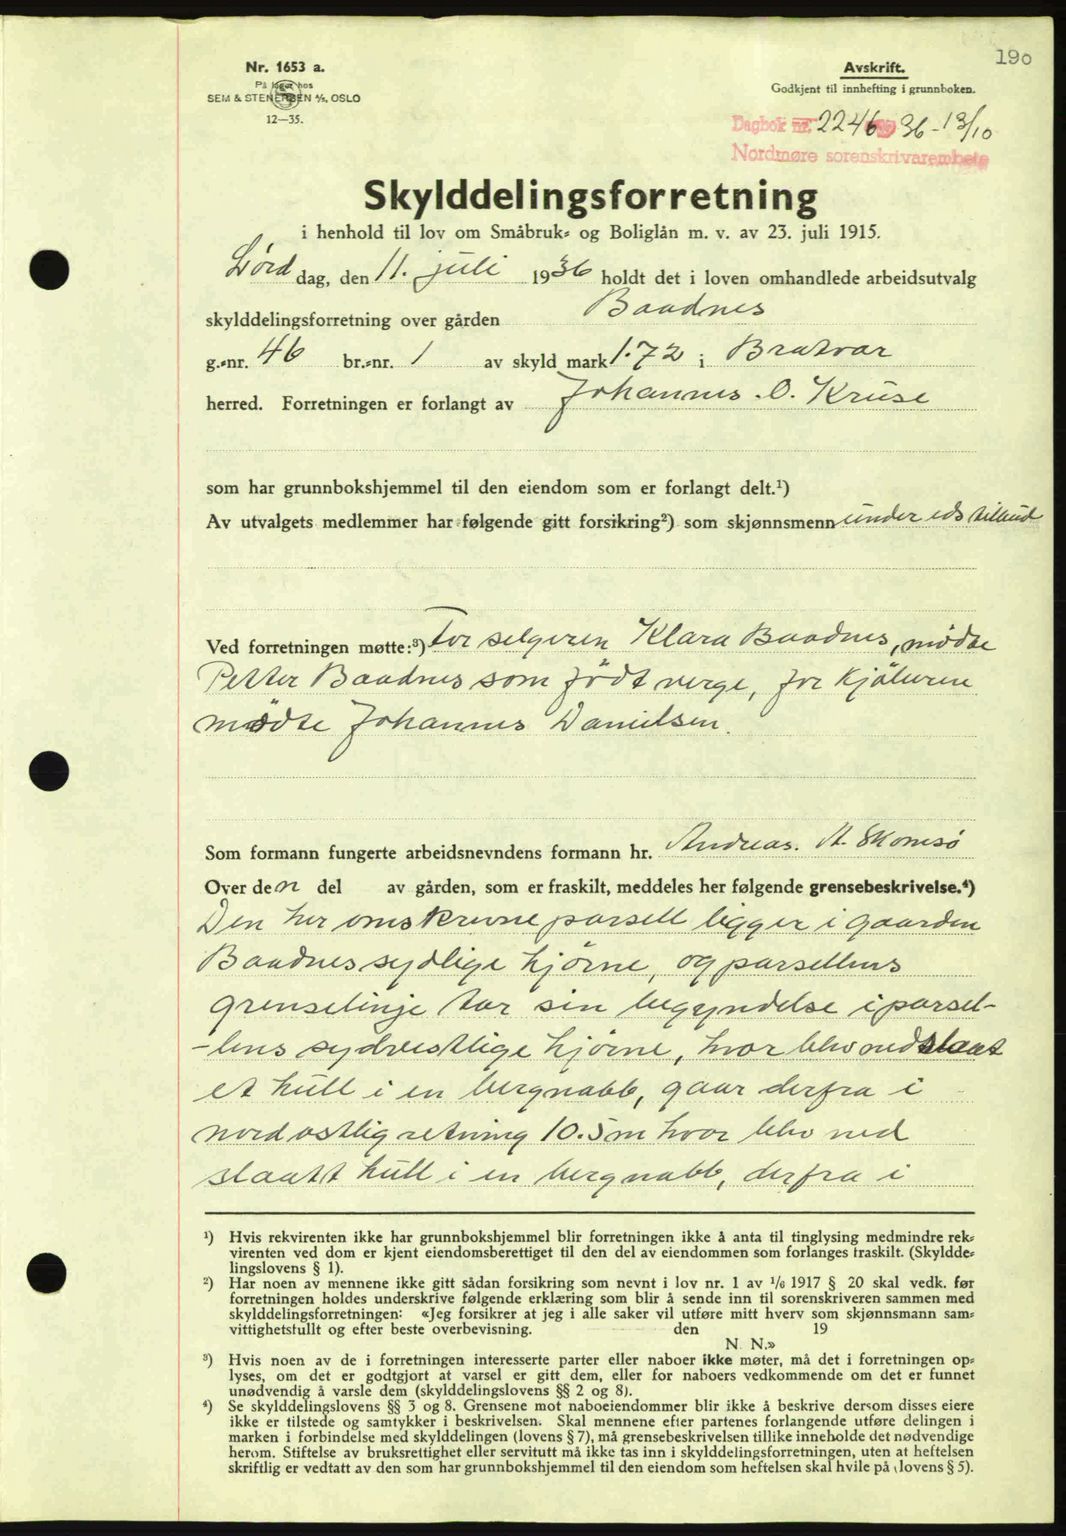 190
Nr. 1653 a.
På lager hos
SEM & STENERSEN A/S, OSLO
12—35.
Avskrift.
Godkjent til innhefting i grunnboken.
Dagbok nr. 2246 36-13/10
Nordmøre sorenskrivarembete
Skylddelingsforretning
i henhold til lov om Småbruk- og Boliglån m. v. av 23. juli 1915.
Lørd dag, den 11. juli 1936 holdt det i loven omhandlede arbeidsutvalg
skylddelingsforretning over gården Baadnes
g.-nr. 46 br.-nr. 1 av skyld mark 1.72 i Bratvær
herred. Forretningen er forlangt av Johannes. O. Kruse
som har grunnbokshjemmel til den eiendom som er forlangt delt.¹)
Av utvalgets medlemmer har følgende gitt forsikring²) som skjønnsmenn under eds tilbud
Ved forretningen møtte:³) For selgeren Klara Baadnes, mødte
Petter Baadnes som født verge, for kjøberen
mødte Johannes Danielsen.
Som formann fungerte arbeidsnevndens formann hr. Andreas. A. Skomsø
Over den del av gården, som er fraskilt, meddeles her følgende grensebeskrivelse.⁴)
Den her omskrevne parsell ligger i gaarden
Baadnes sydlige hjørne, og parsellens
grenselinje tar sin begyndelse i parsel-
-lens sydvestlige hjørne, hvor blev nedslaat
et hull i en bergnabb, gaar derfra i
nordostlig retning 10.5 m hvor blev ned
slaatt hull i en bergnabb, derfra i
¹) Hvis rekvirenten ikke har grunnbokshjemmel blir forretningen ikke å anta til tinglysing medmindre rek-
virenten ved dom er kjent eiendomsberettiget til den del av eiendommen som forlanges fraskilt. (Skyldde-
lingslovens § 1).
²) Har noen av mennene ikke gitt sådan forsikring som nevnt i lov nr. 1 av 1/6 1917 § 20 skal vedk. før
forretningen holdes underskrive følgende erklæring som blir å sende inn til sorenskriveren sammen med
skylddelingsforretningen: «Jeg forsikrer at jeg i alle saker vil utføre mitt hverv som skjønnsmann sam-
vittighetsfullt og efter beste overbevisning. den 19
N. N.»
³) Hvis noen av de i forretningen interesserte parter eller naboer ikke møter, må det i forretningen op-
lyses, om det er godtgjort at varsel er gitt dem, eller for naboers vedkommende om det er funnet
unødvendig å varsle dem (skylddelingslovens §§ 2 og 8).
⁴) Se skylddelingslovens §§ 3 og 8. Grensene mot naboeiendommer blir ikke å beskrive dersom disses eiere
ikke er tilstede og samtykker i beskrivelsen. Skal mennene efter partenes forlangende utføre delingen i
marken i forbindelse med skylddelingen (lovens § 7), må grensebeskrivelsen tillike inneholde det nødvendige
herom. Stiftelse av bruksrettighet eller servitutt må ikke tas inn i skylddelingsforretningen, uten at heftelsen
skriftlig er vedtatt av den som har grunnbokshjemmel til den eiendom som heftelsen skal hvile på (lovens § 5).